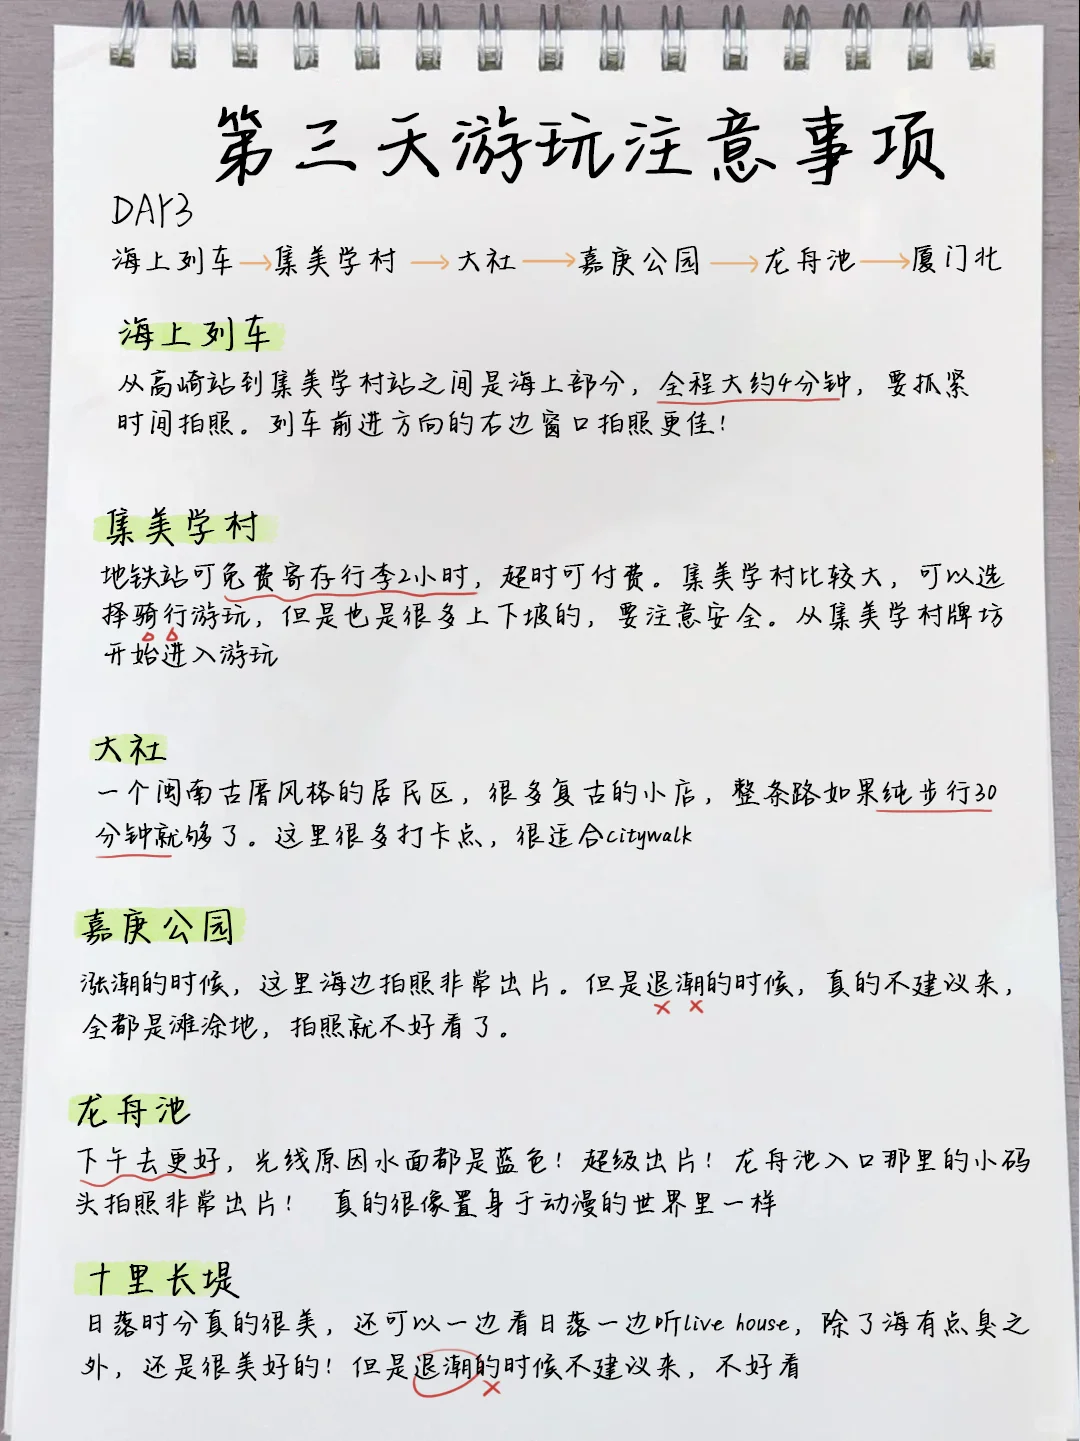 第三天游玩注意事项
DAY3
海上列车→集美学村→大社→嘉庚公园→龙舟池→厦门北
海上列车
从高崎站到集美学村站之间是海上部分，全程大约4分钟，要抓紧
时间拍照。列车前进方向的右边窗口拍照更佳！
集美学村
地铁站可免费寄存行李2小时，超时可付费。集美学村比较大，可以选
择骑行游玩，但是也是很多上下坡的，要注意安全。从集美学村牌坊
开始进入游玩
大社
一个闽南古厝风格的居民区，很多复古的小店，整条路如果纯步行30
分钟就够了。这里很多打卡点，很适合citywalk
嘉庚公园
涨潮的时候，这里海边拍照非常出片。但是退潮的时候，真的不建议来，
全都是滩涂地，拍照就不好看了。
龙舟池
下午去更好，光线原因水面都是蓝色！超级出片！龙舟池入口那里的小码
头拍照非常出片！ 真的很像置身于动漫的世界里一样
十里长堤
日落时分真的很美，还可以一边看日落一边听live house，除了海有点臭之
外，还是很美好的！但是退潮的时候不建议来，不好看